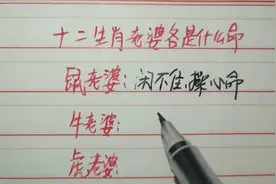 十二生肖老婆各是什么命
鼠老婆:闲不住,操心命
牛老婆:
虎老婆: